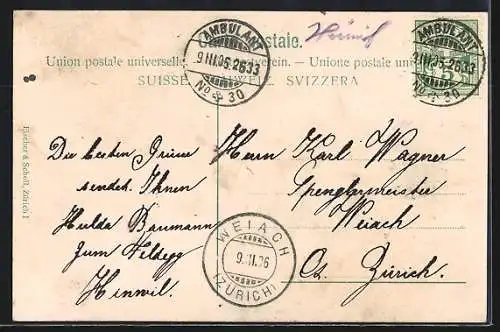 Carte postale.
Union postale universelle. — Weltpostverein. — Unione postale universale.
SUISSE. SCHWEIZ. SVIZZERA
AMBULANT
9 III.06-2633
No 30
AMBULANT
9 III.06-2633
No 30
5
Hinwil
Fischer & Schell, Zürich I
Die besten Grüsse
sendet Ihnen
Hulda Baumann
zum Feldegg
Hinwil.
Herrn Karl Wagner
Spenglermeister
Weiach
Ct. Zürich.
WEIACH
9.III.06
(ZÜRICH)